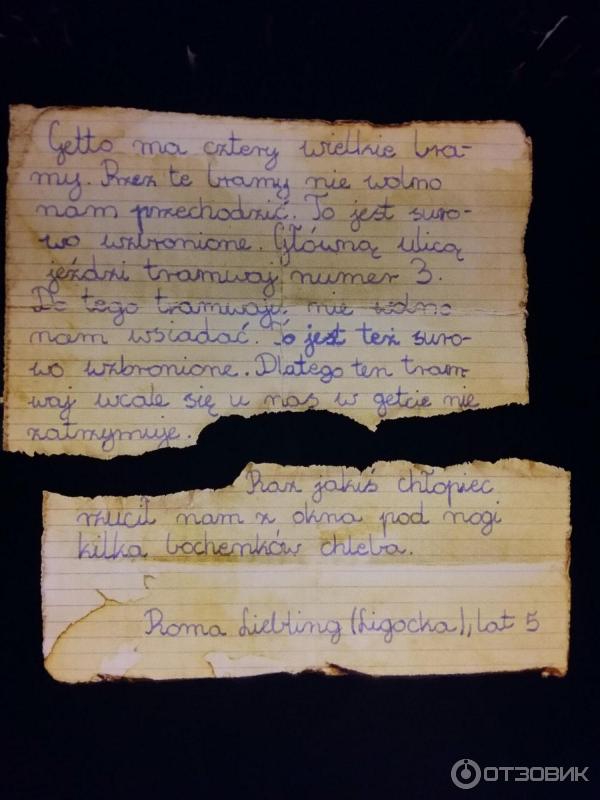 Getto ma cztery wielkie bra-
my. Przez te bramy nie wolno
nam przechodzić. To jest suro-
wo wzbronione. Główną ulicą
jeździ tramwaj numer 3.
Do tego tramwaju nie wolno
nam wsiadać. To jest też suro-
wo wzbronione. Dlatego ten tram-
waj wcale się u nas w getcie nie
zatrzymuje.
Raz jakiś chłopiec
rzucił nam z okna pod nogi
kilka bochenków chleba.
Roma Liebling (Ligocka), lat 5
ОТЗОВИК